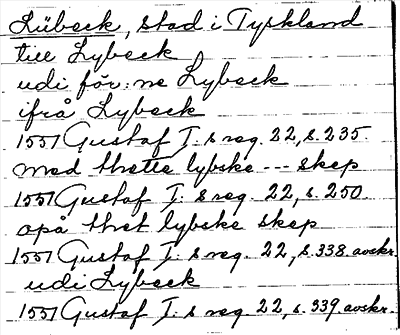 Lübeck, stad i Tyskland
till Lybeck
udi för:ne Lybeck
ifrå Lybeck
1551 Gustaf I: s reg. 22, s. 235.
med thette lybske --- skep
1551 Gustaf I: s reg. 22, s. 250.
opå thet lybske skep
1551 Gustaf I: s reg. 22, s. 338. avskr.
udi Lybeck
1551 Gustaf I: s reg. 22, s. 339. avskr.